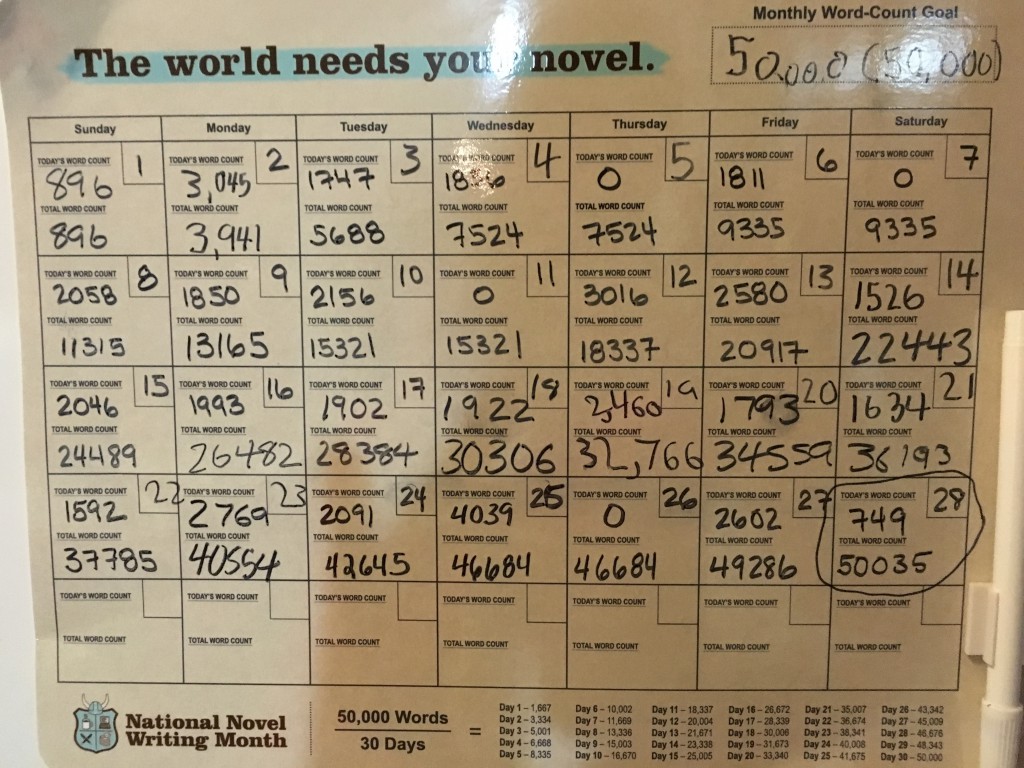 Monthly Word-Count Goal
50,000 (50,000)
The world needs your novel.
Sunday Monday Tuesday Wednesday Thursday Friday Saturday
TODAY'S WORD COUNT 1 TODAY'S WORD COUNT 2 TODAY'S WORD COUNT 3 TODAY'S WORD COUNT 4 TODAY'S WORD COUNT 5 TODAY'S WORD COUNT 6 TODAY'S WORD COUNT 7
896 3,045 1747 0 1811 0
TOTAL WORD COUNT TOTAL WORD COUNT TOTAL WORD COUNT TOTAL WORD COUNT TOTAL WORD COUNT TOTAL WORD COUNT TOTAL WORD COUNT
896 3,941 5688 7524 7524 9335 9335
TODAY'S WORD COUNT 8 TODAY'S WORD COUNT 9 TODAY'S WORD COUNT 10 TODAY'S WORD COUNT 11 TODAY'S WORD COUNT 12 TODAY'S WORD COUNT 13 TODAY'S WORD COUNT 14
2058 1850 2156 0 3016 2580 1526
TOTAL WORD COUNT TOTAL WORD COUNT TOTAL WORD COUNT TOTAL WORD COUNT TOTAL WORD COUNT TOTAL WORD COUNT TOTAL WORD COUNT
11315 13165 15321 15321 18337 20917 22443
TODAY'S WORD COUNT 15 TODAY'S WORD COUNT 16 TODAY'S WORD COUNT 17 TODAY'S WORD COUNT 18 TODAY'S WORD COUNT 19 TODAY'S WORD COUNT 20 TODAY'S WORD COUNT 21
2046 1993 1902 1922 2,460 1793 1634
TOTAL WORD COUNT TOTAL WORD COUNT TOTAL WORD COUNT TOTAL WORD COUNT TOTAL WORD COUNT TOTAL WORD COUNT TOTAL WORD COUNT
24489 26482 28384 30306 32,766 34559 36193
TODAY'S WORD COUNT 22 TODAY'S WORD COUNT 23 TODAY'S WORD COUNT 24 TODAY'S WORD COUNT 25 TODAY'S WORD COUNT 26 TODAY'S WORD COUNT 27 TODAY'S WORD COUNT 28
1592 2769 2091 4039 0 2602 749
TOTAL WORD COUNT TOTAL WORD COUNT TOTAL WORD COUNT TOTAL WORD COUNT TOTAL WORD COUNT TOTAL WORD COUNT TOTAL WORD COUNT
37785 40554 42645 46684 46684 49286 50035
TODAY'S WORD COUNT TODAY'S WORD COUNT TODAY'S WORD COUNT TODAY'S WORD COUNT TODAY'S WORD COUNT TODAY'S WORD COUNT TODAY'S WORD COUNT
TOTAL WORD COUNT TOTAL WORD COUNT TOTAL WORD COUNT TOTAL WORD COUNT TOTAL WORD COUNT TOTAL WORD COUNT TOTAL WORD COUNT
National Novel
Writing Month
50,000 Words
30 Days
=
Day 1 – 1,667
Day 2 – 3,334
Day 3 – 5,001
Day 4 – 6,668
Day 5 – 8,335
Day 6 – 10,002
Day 7 – 11,669
Day 8 – 13,336
Day 9 – 15,003
Day 10 – 16,670
Day 11 – 18,337
Day 12 – 20,004
Day 13 – 21,671
Day 14 – 23,338
Day 15 – 25,005
Day 16 – 26,672
Day 17 – 28,339
Day 18 – 30,006
Day 19 – 31,673
Day 20 – 33,340
Day 21 – 35,007
Day 22 – 36,674
Day 23 – 38,341
Day 24 – 40,008
Day 25 – 41,675
Day 26 – 43,342
Day 27 – 45,009
Day 28 – 46,676
Day 29 – 48,343
Day 30 – 50,000